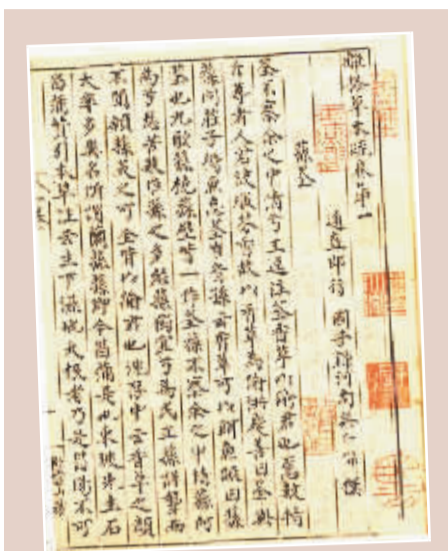 離騷草木疏卷第一
通直郎行 國子錄河南吳仁傑撰
蓀荃
荃不察余之中情兮王逸注荃香草以諭君也惡數指
斥尊者人君被服芬香故以香草為諭洪慶善曰荃與
蓀同莊子得魚忘荃崔音孫云香草可以餌魚疏云蓀
荃也九歌蓀橈蓀壁皆一作荃蓀不察余之中情蓀何
為兮愁苦數惟蓀之多怒蓀獨宜兮為民正蓀詳聾而
不聞願蓀美之可完皆以諭君也沈存中云香草之類
大率多異名所謂蘭蓀蓀即今菖蒲是也東坡先生石
菖蒲贊引本草注云生下濕地大根者乃是昌陽不可